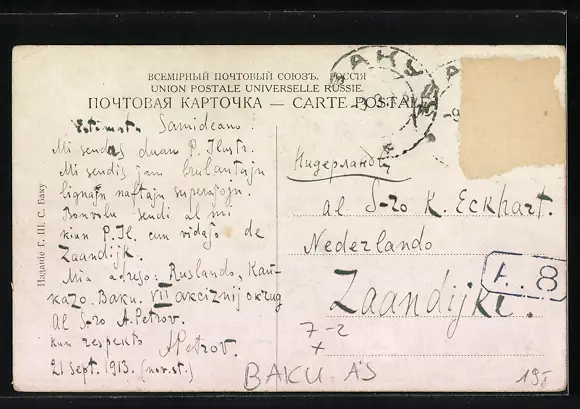 ВСЕМІРНЫЙ ПОЧТОВЫЙ СОЮЗЪ. РОССІЯ
UNION POSTALE UNIVERSELLE RUSSIE.
ПОЧТОВАЯ КАРТОЧКА — CARTE POSTALE
Estimata Samideano.
Mi sendas duan P. Ilustr.
Mi sendis jam brulantajn
lignajn naftajn
Bonvolu sendi al mi
kiun P. Il. cun vidajo de
Zaandijk.
Mia adreso: Ruslando, Kaŭ-
kazo. Baku. VII akciznij okrug
al S-ro A. Petrov.
kun respekto APetrov.
21 Sept. 1913. (nov. st.)
Изданіе Г. Ш. С. Баку
БАКУ
Нидерланды
al S-ro K. Eckhart.
Nederlando
Zaandijke.
A. 8
7-2
x
BAKU. AS
195